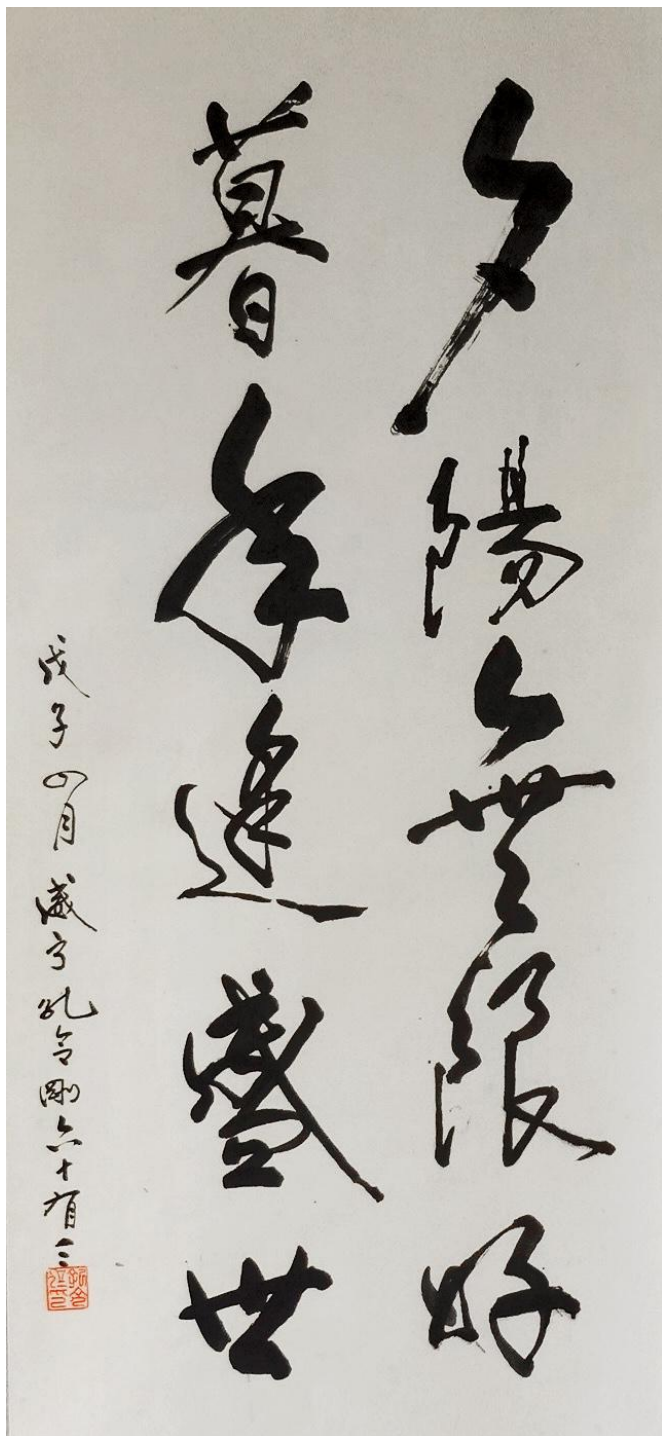 夕陽無限好
暮年逢盛世
戊子四月咸寧孔令剛六十有三